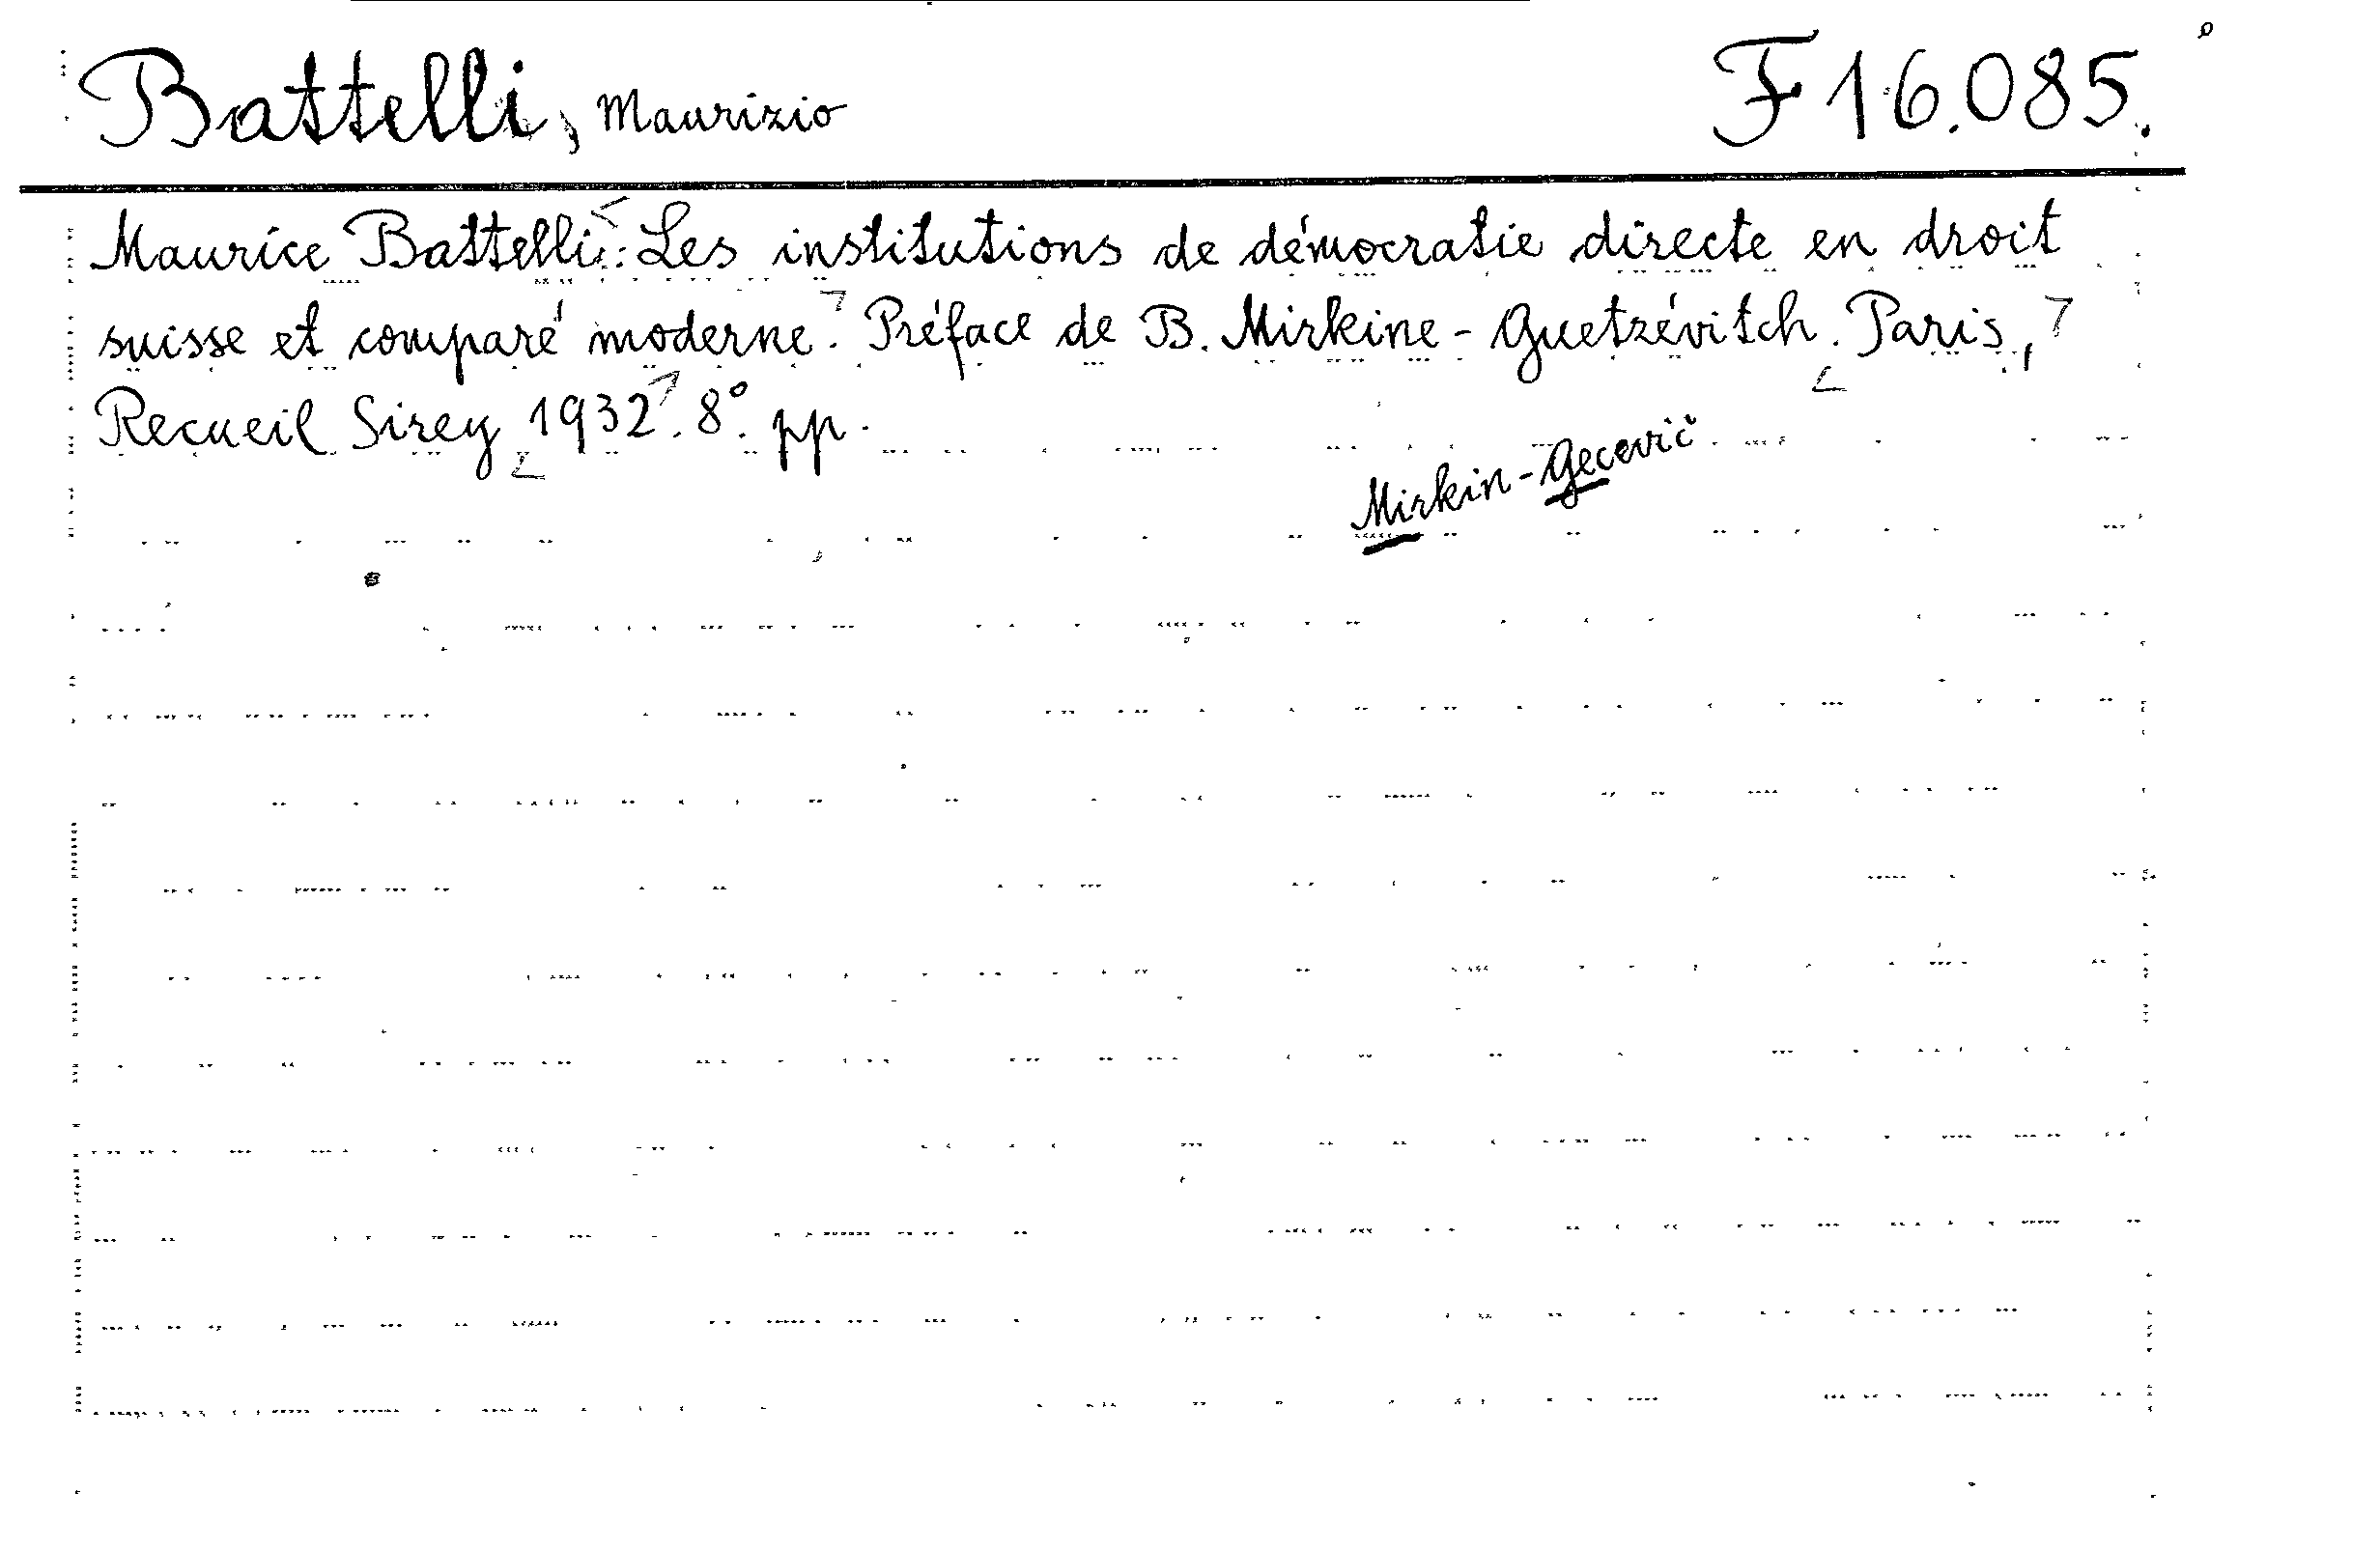 Battelli, Maurizio F 16.085.
Maurice Battelli: Les institutions de démocratie directe en droit
suisse et comparé moderne. Préface de B. Mirkine-Guetzévitch. Paris,
Recueil Sirey 1932. 8°. pp.
Mirkin-Gecevič